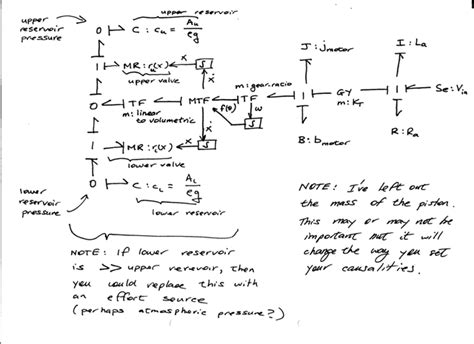 upper reservoir pressure
upper reservoir
O C : cᵤ = Aᵤ / ρg
1 MR : rᵤ(x) ẋ S
upper valve
ẋ
m: gear ratio
O TF MTF TF 1 GY 1 Se: Vin
m: linear to volumetric
f(θ) ω
m: K_T
J : J motor
I : La
B : b motor
R : Ra
ẋ
1 MR : r_L(x) ẋ S
lower valve
O C : c_L = A_L / ρg
lower reservoir
lower reservoir pressure
NOTE: If lower reservoir
is >> upper rerevoir, then
you could replace this with
an effort source
(perhaps atmospheric pressure?)
NOTE: I've left out
the mass of the piston.
This may or may not be
important but it will
change the way you set
your causalities.